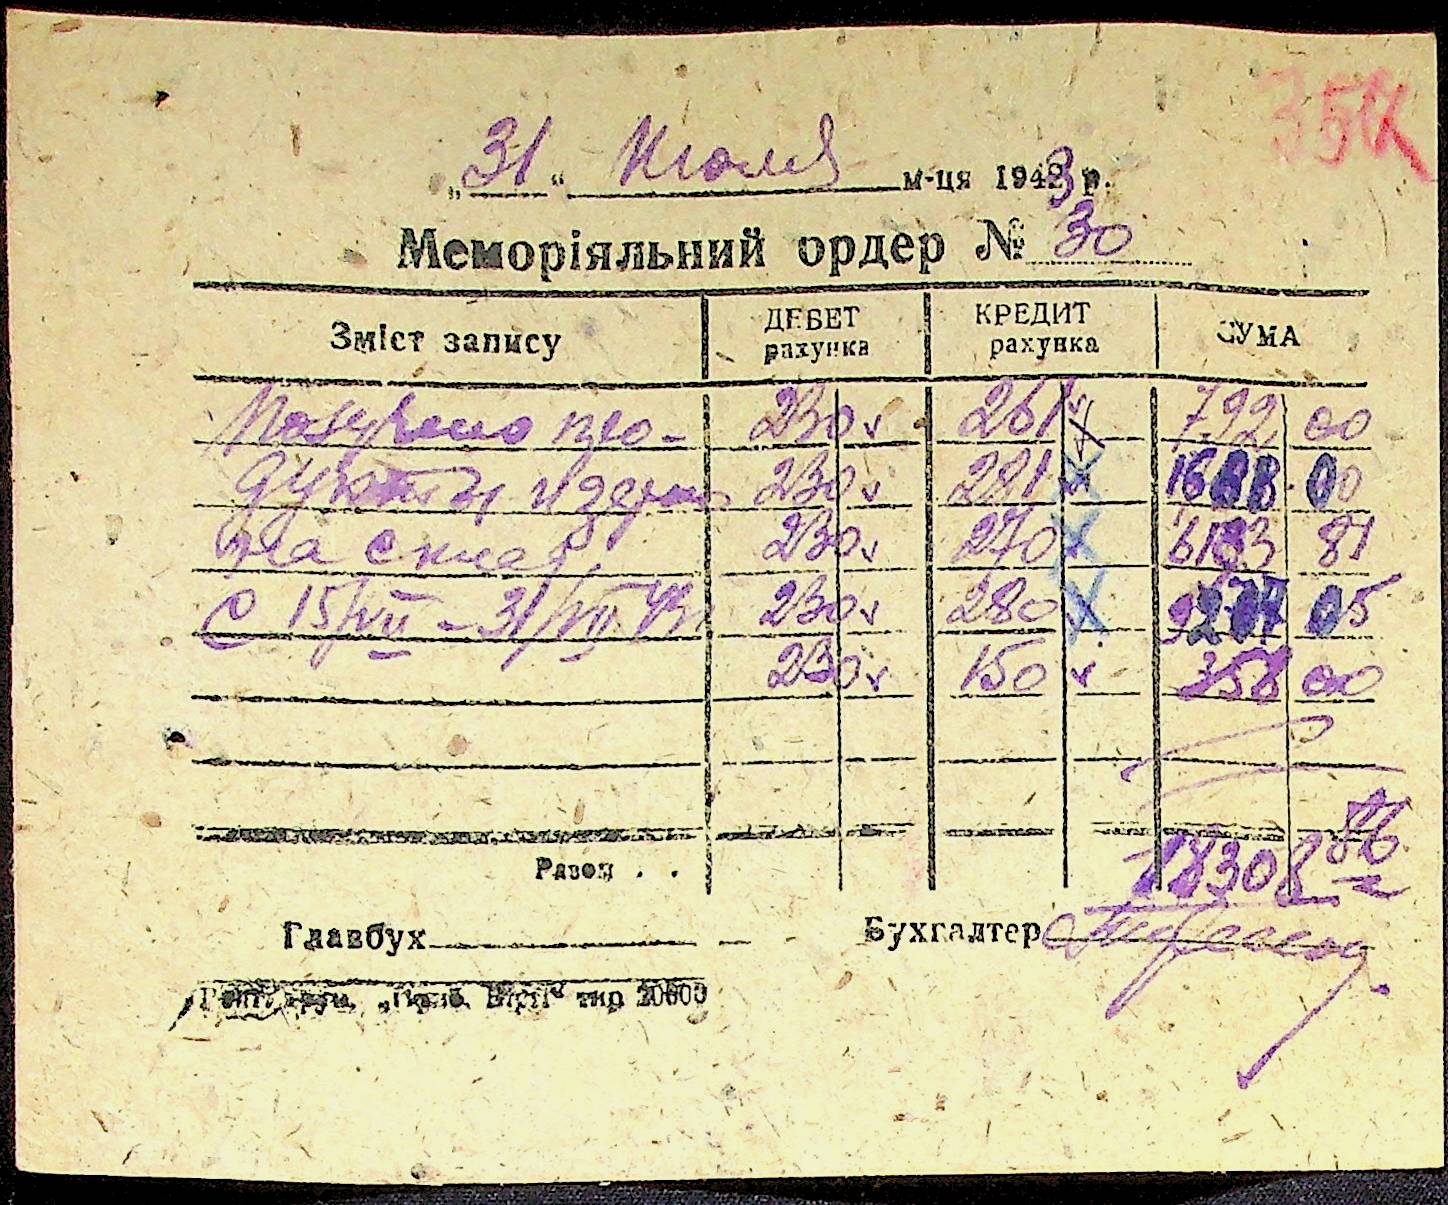 „31“ Июля м-ця 1943 р.
Меморіяльний ордер № 30
Зміст запису ДЕБЕТ рахунка КРЕДИТ рахунка СУМА
про- 230 v 261 v 792 00
дукты из 230 v 281 1688 00
на склад 230 v 270 6183 81
С 15/VII - 31/VII 43 230 v 280 05
230 v 150 v 358 00
Разом . . 18308 86
Главбух Бухгалтер
тир 20600